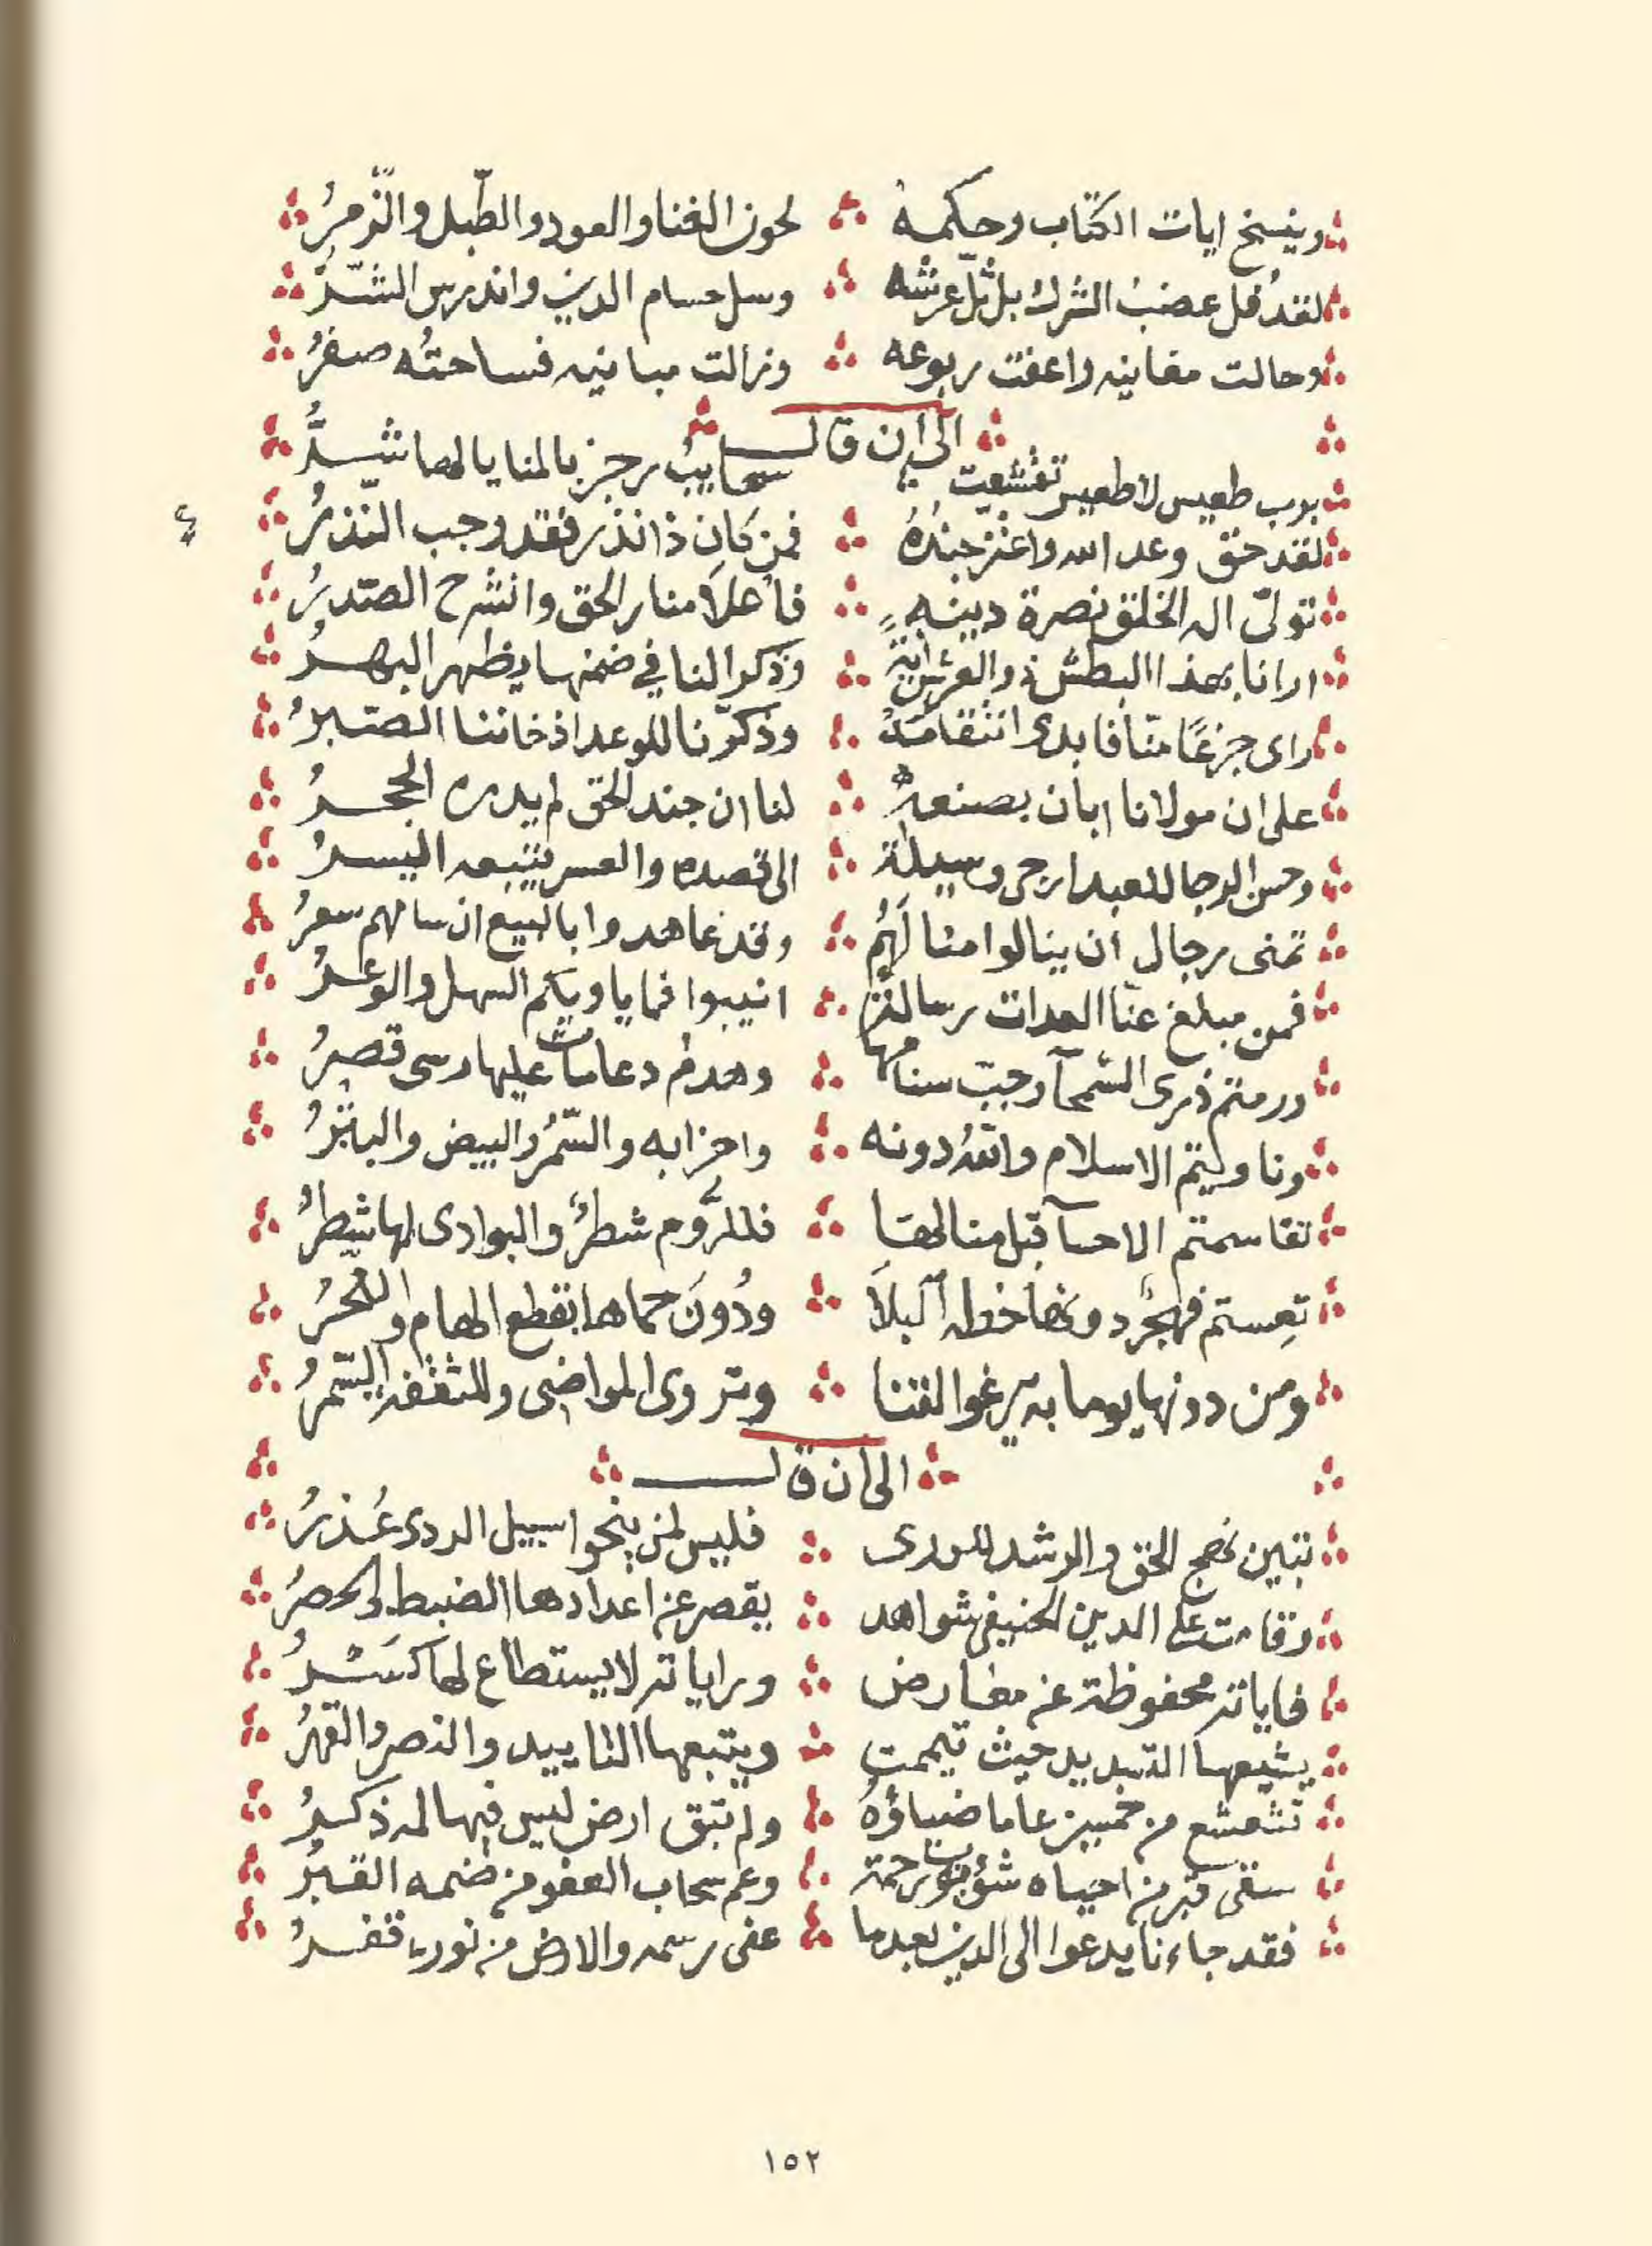 وينسخ ايات الكتاب وحكمه لحون الغنا والعود والطّبل والزّمرُ
لقد فل عضبُ الشرك بل ثلّ عرشه وسل حسام الدين واندرس الشّرُّ
وحالت مغانيه واعفت ربوعه وزالت مبانيه فساحتُه صفرُ
الى ان قال
بوب طعيس لا طعيس تقشعت سحايبُ رجز بالمنايا لها شرُّ
لقد حق وعد الله واعتز جندُهُ فمن كان ذا نذر فقد وجب النّذرُ
تولىّ اله الخلق نصرة دينهِ فأعلا منار الحق وانشرح الصّدرُ
ارانا بهذا البطش ذو العرش ايةً وذكرا لنا في ضمنها يظهر البهرُ
راى جزعًا منّا فابدى انتقامهُ وذكّرنا للوعد اذ خاننا الصّبرُ
على ان مولانا ابان بصنعهِ لنا ان جند الحق لم يدره الحجرُ
وحسن الرجا للعبد ارجى وسيلة الى قصده والعسر يتبعه اليسرُ
تمنى رجال ان ينالوا منا لهُم وقد عاهدوا بالبيع ان سامهم سعرُ
فمن مبلغ عنّا العدات رسالة انيبوا فما ياويكم السهل والوعرُ
ورمتم ذرى الشمآ وجبّ سنامها وهدم دعامات عليها رسى قصرُ
وناويتم الاسلام والله دونه واحزابه والسّمرُ والبيض والبترُ
تقاسمتم الاحسآ قبل منالها فللرُّوم شطرٌ والبوادى لها شطرُ
تعِستم فهجْر دونها خطه البلاَ ودُونَ حماها نقطع الهام والنحرُ
ومن دونها يوما به يرغوا القنا وتروى المواضى والمثقفه السّمرُ
الى ان قال
تبين نهج الحق والرشد للورى فليس لمن ينحوا سبيل الردى عُذرُ
وقامت على الدين الحنيفى شواهد يقصر عن اعدادها الضبط والحصرُ
فاياته محفوظة عن معارض وراياته لا يستطاع لها كسَرُ
يشيعها التبديد حيث تيممت ويتبعها التاييد والنصر والقهرُ
تشعشع من خمسين عاما ضياؤهُ ولم تبق ارض ليس فيها له ذكرُ
سقى قبر من احياه شؤبوب رحمة وعم سحاب العفو من ضمه القبرُ
فقد جاءنا يدعوا الى الدين بعدما عفى رسمه والارض من نوره قفرُ
١٥٢